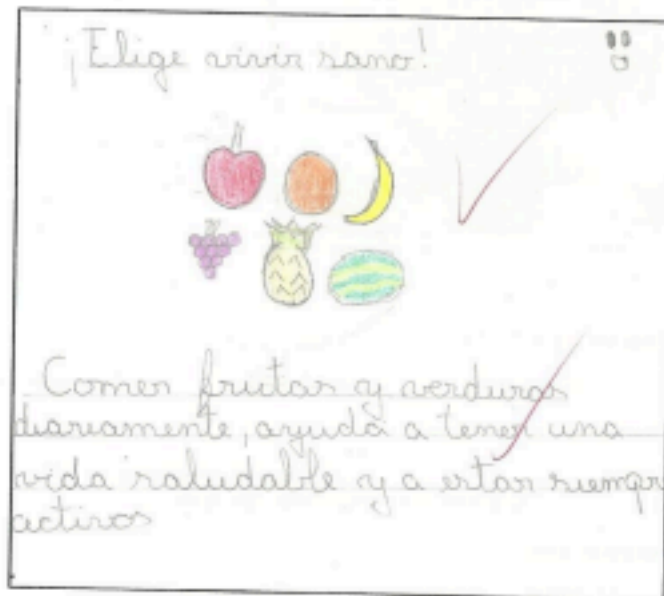 ¡Elige vivir sano!
Comer frutas y verduras
diariamente, ayuda a tener una
vida saludable y a estar siempr
activos